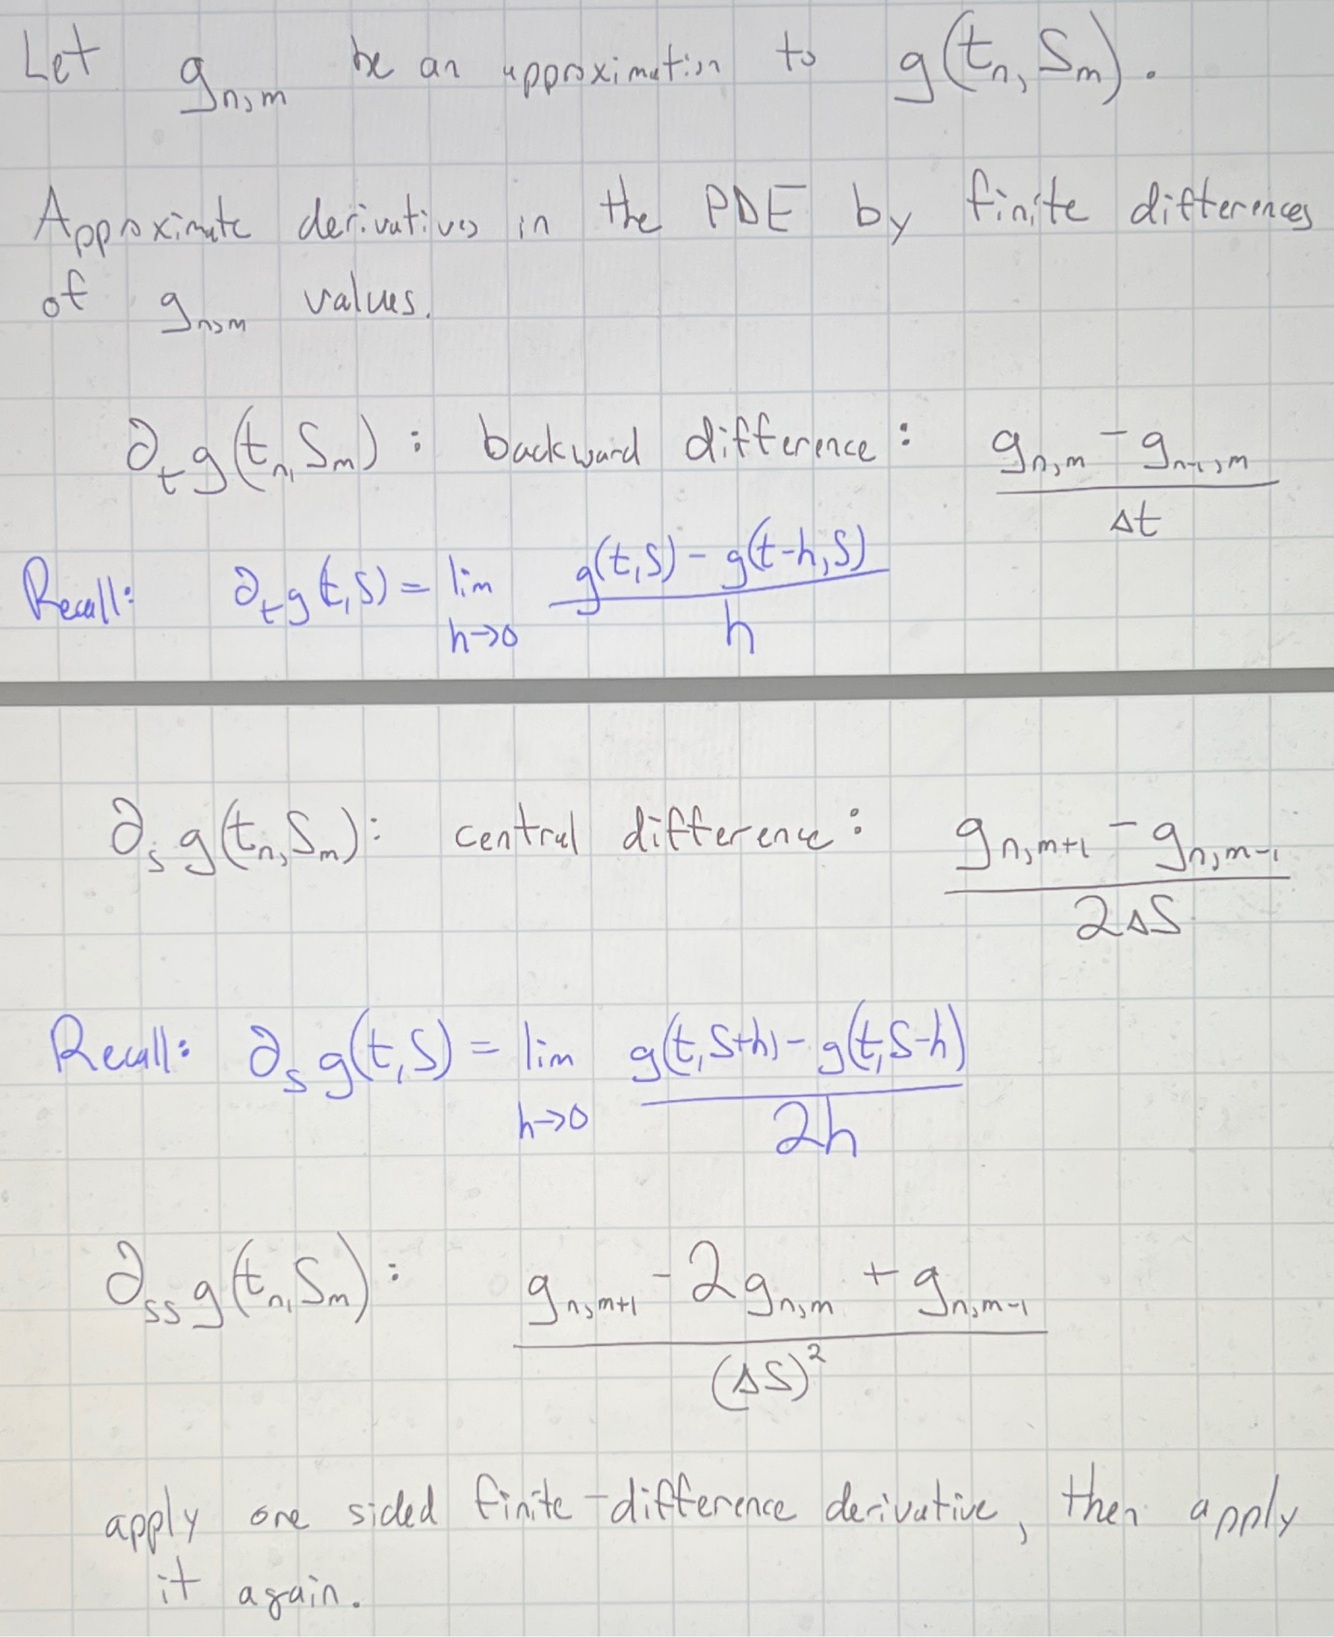 Let g_{n,m} be an approximation to g(t_n, S_m).
Approximate derivatives in the PDE by finite differences
of g_{n,m} values.
∂_t g(t_n, S_m) : backward difference : (g_{n,m} - g_{n-1,m}) / Δt
Recall: ∂_t g(t,S) = lim_{h→0} (g(t,S) - g(t-h,S)) / h
∂_s g(t_n, S_m) : central difference : (g_{n,m+1} - g_{n,m-1}) / 2ΔS
Recall: ∂_s g(t,S) = lim_{h→0} (g(t,S+h) - g(t,S-h)) / 2h
∂_{ss} g(t_n, S_m) : (g_{n,m+1} - 2g_{n,m} + g_{n,m-1}) / (ΔS)^2
apply one sided finite-difference derivative, then apply
it again.